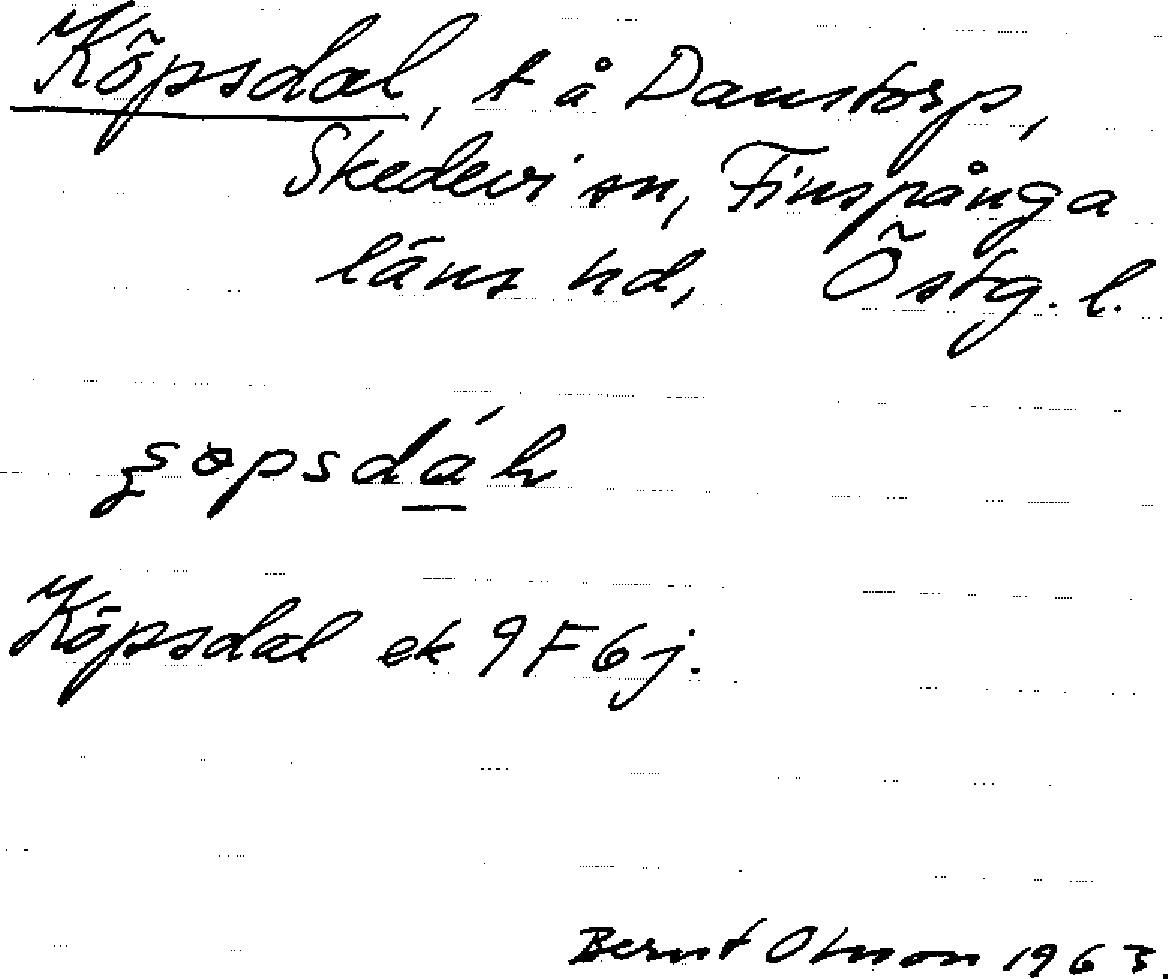 Köpsdal, t å Danstorp,
Skedevi sn, Finspånga
läns hd, Östg. l.
Köpsdal ek 9F6j.
Bernt Olsson 1963.